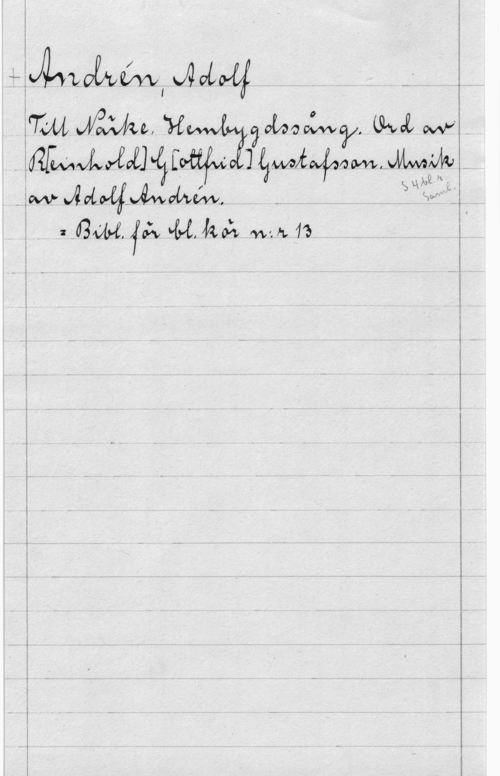 + Andrén, Adolf
Till Närke. Hembygdssång. Ord av
R[einhold] G[ottfrid] Gustafsson. Musik
av Adolf Andrén.
S 4 bl. r.
Saml.
= Bibl. för bl. kör n:r 13